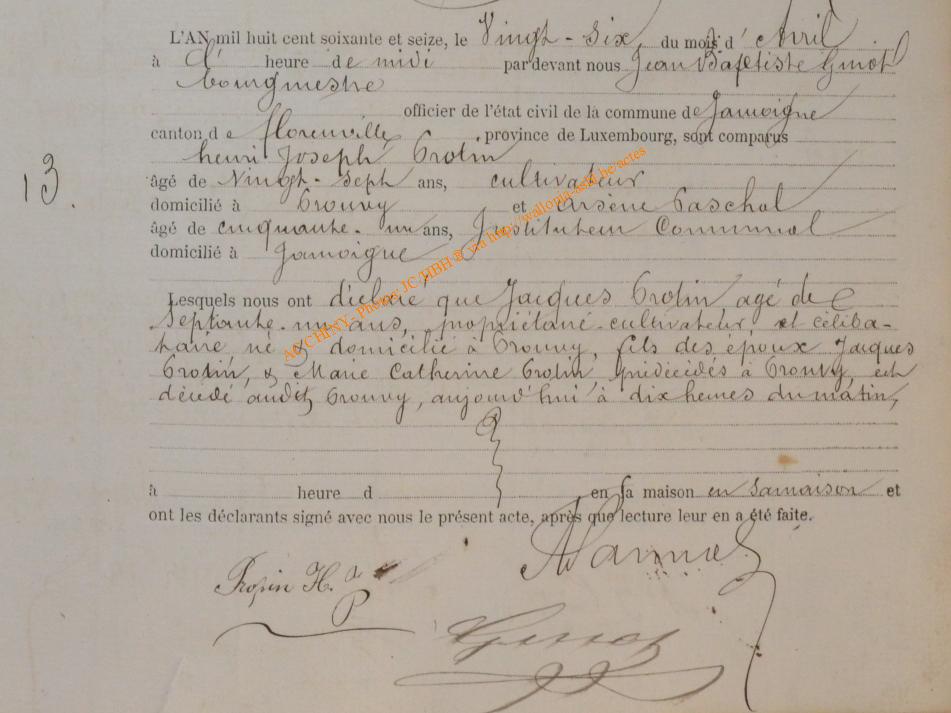 L'AN mil huit cent soixante et seize, le Vingt-six, du mois d' Avril
à d' heure de midi par devant nous Jean Baptiste
bourgmestre
officier de l'état civil de la commune de Jamoigne
canton de florenville province de Luxembourg, sont comparus
henri Joseph
13.
âgé de Vingt-Sept ans, cultivateur
domicilié à Prouvy et Arsène Paschal
âgé de cinquante-un ans, Instituteur Communal
domicilié à Jamoigne
Lesquels nous ont déclaré que Jacques agé de
Septante-un ans, propriétaire-cultivateur, et céliba-
taire né & domicilié à Prouvy, fils des époux Jacques
& Marie Catherine prédécédés à Prouvy, est
décédé audit Prouvy, aujourd'hui à dix heures du matin,
à heure d en sa maison en sa maison et
ont les déclarants signé avec nous le présent acte, après que lecture leur en a été faite.
H. J.
ACCHINY - Photos: JC HBH @ via http://wallonia-asbl.be/actes